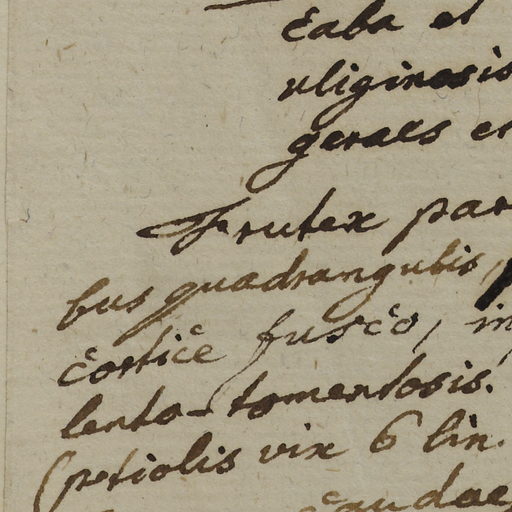 caba et
uliginosis
geraes en
Frutex par
bus quadrangulis,
cortice fusco, in
lento-tomentosis.
(petiolis vix 6 lin.
caudae